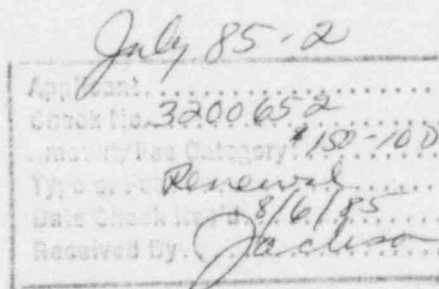 July 85-2
Applicant....................
Check No. 3200652
Amount/Fee Category $150-10D
Type of Fee Renewal
Date Check Rec'd. 8/6/85
Received By. Jackson